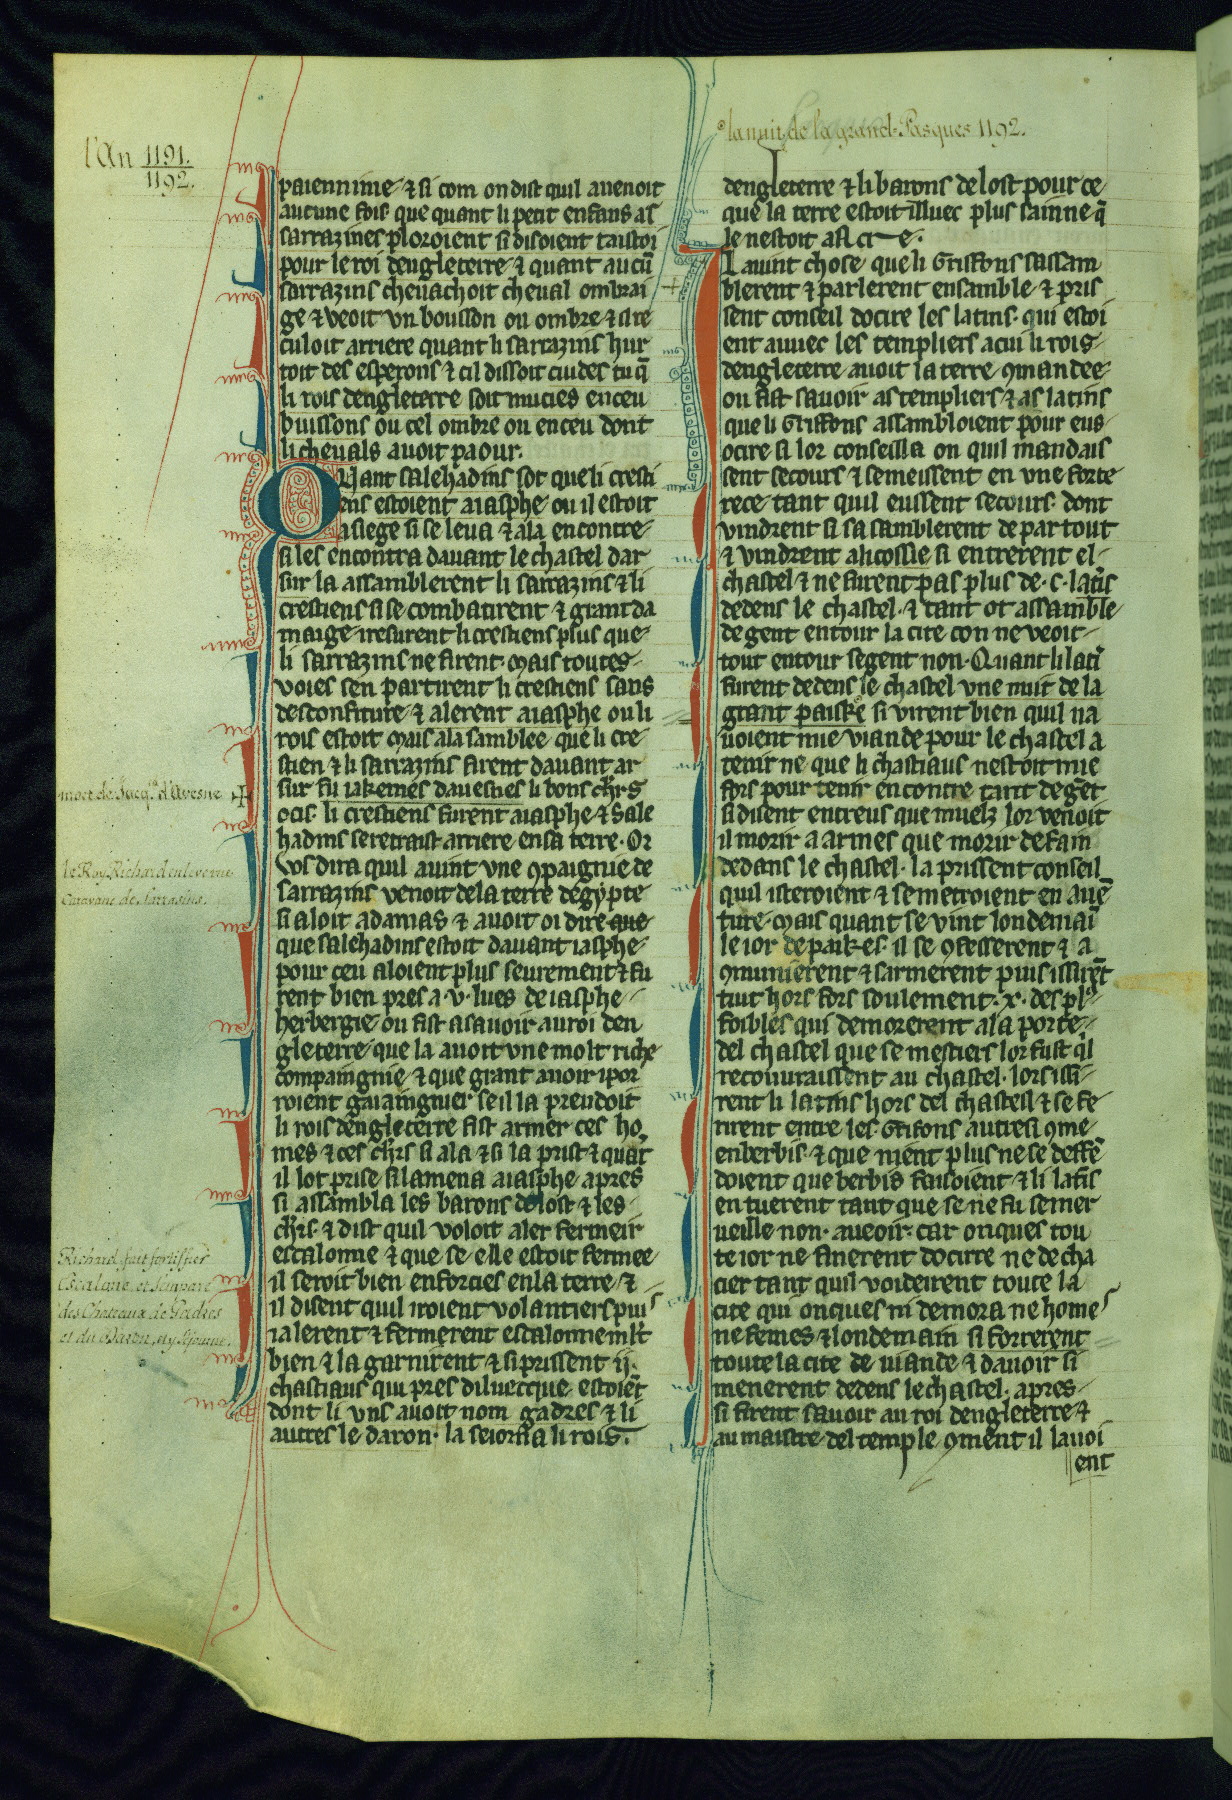 l'An 1191.
1192.
la nuit de la grand Pasques 1192.
paiennime ⁊ si com on dist quil auenoit
aucune fois que quant li petit enfans as
sarrazines ploroient si disoient taistoi
pour le roi dengleterre ⁊ quant aucũ
sarrazins cheuachoit cheual ombrai
ge ⁊ veoit vn boisson ou ombre ⁊ si re
culoit arriere quant li sarrazins hur
toit des esperons ⁊ cil dissoit cuides tu q̃
li rois dengleterre soit mucies en ceu
buissons ou cel ombre ou en ceu dont
li cheuals auoit paour.
Quant salehadins sot que li cresti
ens estoient a iasphe ou il estoit
asiege si se leua ⁊ ala encontre
si les encontra dauant le chastel dar
sur la assamblerent li sarrazins ⁊ li
crestiens si se combatirent ⁊ grant da
maige iresurent li crestiens plus que
li sarrazins ne firent. Mais toutes
voies sen partirent li crestiens sans
desconfiture ⁊ alerent a iasphe ou li
rois estoit Mais a la samblee que li cre
stien ⁊ li sarrazins firent dauant ar
sur fu iakemes dauesnes li bons chrs
ocis. li crestiens furent a iasphe ⁊ Sale
hadins se retraist arriere en sa terre. Or
vos dira quil auint vne ꝯpaignie de
sarrazins venoit de la terre degypte
si aloit a damas ⁊ auoit oi dire que
que salehadins estoit dauant iasphe
pour ceu aloient plus seurement ⁊ fu
rent bien pres a .v. lues de iasphe
herbergie ou fist a sauoir au roi den
gleterre que la auoit vne molt riche
compaingnie ⁊ que grant auoir i por
roient gaaingnier se il la prendoit
li rois dengleterre fist armer ces ho
mes ⁊ ces chrs si ala ⁊ si la prist ⁊ quãt
il lot prise si lamena a iasphe apres
si assambla les barons de lost ⁊ les
chrs. ⁊ dist quil voloit aler fermeir
escalonne ⁊ que se elle estoit fermee
il seroit bien enforcies en la terre ⁊
il disent quil iroient volantiers puis
i alerent ⁊ fermerent escalonne mlt
bien ⁊ la garnirent ⁊ si prissent ij.
chastiaus qui pres diluecque estoiẽt
dont li vns auoit nom gadres ⁊ li
autres le daron. la seiorna li rois.
mort de Jacq. d'Avesne
le Roy Richard enleve une
Caravane de Sarrasins.
Richard fait fortifier
Escalone et s'empare
des Chateaux de Gadres
et du Daron, il y sejourne.
dengleterre ⁊ li barons de lost pour ce
que la terre estoit illuec plus sainne q̃
le nestoit a acre.
Lauint chose que li Griffons sassam
blerent ⁊ parlerent ensamble ⁊ pris
sent conseil docire les latins. qui estoi
ent auuec les templiers a cui li rois
dengleterre auoit la terre ꝯmandee
ou fist sauoir as templiers ⁊ as latins
que li Griffons assambloient pour eus
ocire si lor conseilla on quil mandais
sent secours ⁊ se meissent en vne forte
rece tant quil eussent secours. dont
vindrent si sa samblerent de par tout
⁊ vindrent a licossie si entrerent el
chastel ⁊ ne furent pas plus de .c. latĩs
dedens le chastel. ⁊ tant ot assamble
de gent entour la cite con ne veoit
tout entour se gent non. Quant li latĩ
furent dedens le chastel vne nuit de la
grant paiske si virent bien quil na
uoient mie viande pour le chastel a
tenir ne que li chastiaus nestoit mie
fors pour tenir encontre tant de gẽt
si disent entreus que muelz lor venoit
il morir a armes que morir de fain
dedans le chastel. la prissent conseil
quil isteroient ⁊ se metroient en auẽ
ture. Mais quant se vint londemaĩ
le ior de paikes il se ꝯfesserent ⁊ a
ꝯmunierent ⁊ sarmerent puis issirẽt
tuit hors fors soulement .x. des pl⁹
foibles qui demorerent a la porte
del chastel que se mestiers lor fust q̃l
recouuraissent au chastel. lors issi
rent li latins hors del chastel ⁊ se fe
rirent entre les Grifons autresi ꝯme
en berbis ⁊ que nient plus ne se deffẽ
doient que berbis faisoient ⁊ li latĩs
en tuerent tant que se ne fu se mer
ueille non. aueoir. car onques tou
te ior ne finerent docirre ne de cha
cier tant quil voideirent toute la
cite qui onques ni demora ne home
ne femes ⁊ londemain si forrerent
toute la cite de viande ⁊ dauoir si
menerent dedens le chastel. apres
si firent sauoir au roi dengleterre ⁊
au maistre del temple ꝯment il lauoi
ent